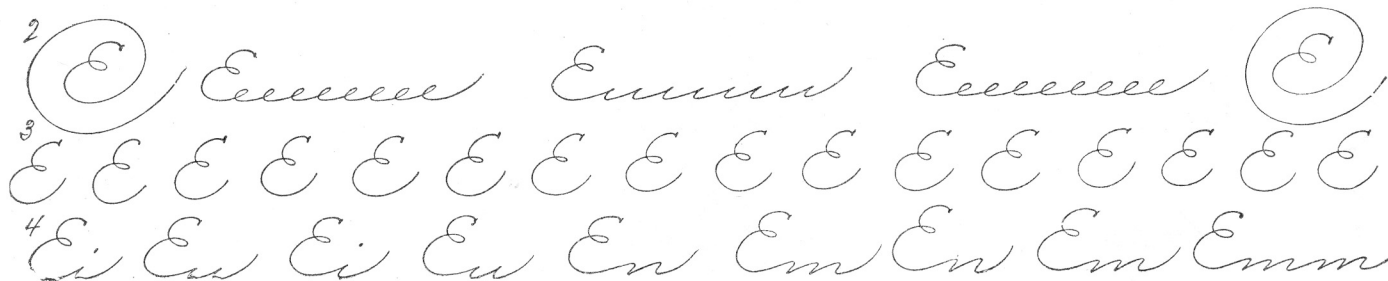 2 E Eeeeeeee Euuu Eeeeeeee E
3 E E E E E E E E E E E E E E E E
4 Ei Eu Ei Eu En Em En Em Emm